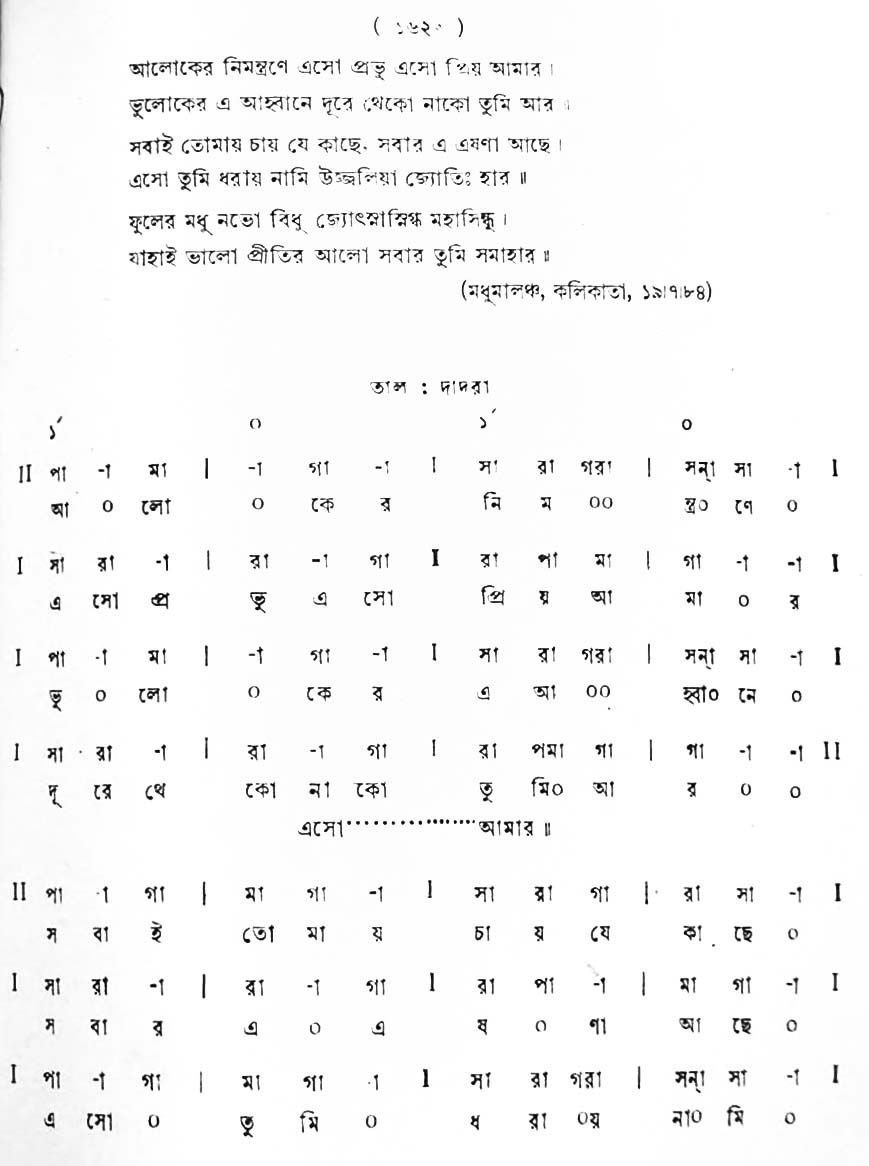 ( ১৬২ )
আলোকের নিমন্ত্রণে এসো প্রভু এসো প্রিয় আমার ।
ভুলোকের এ আহ্বানে দূরে থেকো নাকো তুমি আর ।
সবাই তোমায় চায় যে কাছে, সবার এ এষণা আছে ।
এসো তুমি ধরায় নামি উজ্জলিয়া জ্যোতিঃ হার ॥
ফুলের মধু নভো বিধু জ্যোৎস্নাস্নিগ্ধ মহাসিন্ধু ।
যাহাই ভালো প্রীতির আলো সবার তুমি সমাহার ॥
(মধুমালঞ্চ, কলিকাতা, ১৯।৭।৮৪)
তাল : দাদরা
১´ ০ ১´ ০
II পা -া মা | -া গা -া I সা রা গরা | সন্া সা -া I
আ ০ লো ০ কে র নি ম ০০ ন্ত্র০ ণে ০
I সা রা -া | রা -া গা I রা পা মা | গা -া -া I
এ সো প্র ভু এ সো প্রি য় আ মা ০ র
I পা -া মা | -া গা -া I সা রা গরা | সন্া সা -া I
ভূ ০ লো ০ কে র এ আ ০০ হ্বা০ নে ০
I সা রা -া | রা -া গা I রা পমা গা | গা -া -া II
দূ রে থে কো না কো তু মি০ আ র ০ ০
এসো··················আমার ॥
II পা -া গা | মা গা -া I সা রা গা | রা সা -া I
স বা ই তো মা য় চা য় যে কা ছে ০
I সা রা -া | রা -া গা I রা পা -া | মা গা -া I
স বা র এ ০ এ ষ ০ ণা আ ছে ০
I পা -া গা | মা গা -া I সা রা গরা | সন্া সা -া I
এ সো ০ তু মি ০ ধ রা ০য় না০ মি ০